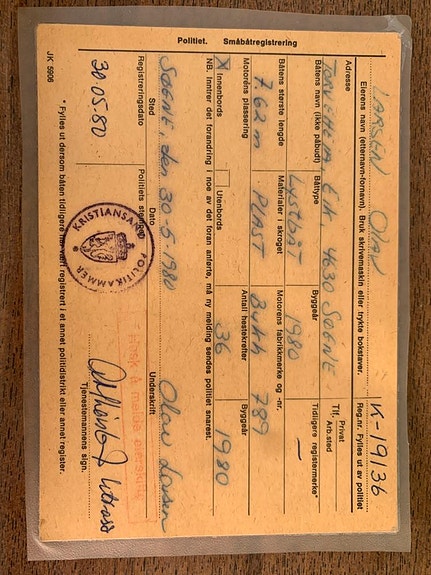 Politiet. Småbåtregistrering
K-19136
Reg.nr. Fylles ut av politiet
LARSEN Olav
Eierens navn (etternavn-fornavn). Bruk skrivemaskin eller trykte bokstaver.
4630 SØGNE
Adresse Tlf. Privat Arb.sted
Båtens navn (ikke påbudt) Båttype Byggeår Tidligere registermerke*
Lystbåt 1980 —
Båtens største lengde Materialer i skroget Motorens fabrikkmerke og -nr.
7.62 m PLAST 789
Motorens plassering Antall hestekrefter Byggeår
X Innenbords Utenbords 36 1980
NB. Inntrer det forandring i noe av det foran anførte, må ny melding sendes politiet snarest.
SØGNE, den 30-5-1980 Olav Larsen
Sted Dato Underskrift
Registreringsdato Politiets stempel Tjenestemannens sign.
30.05.80
KRISTIANSAND POLITIKAMMER
* Fylles ut dersom båten tidligere har vært registrert i et annet politidistrikt eller annet register.
JK 5906